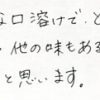 な口溶けで、と
他の味もある
と思います。